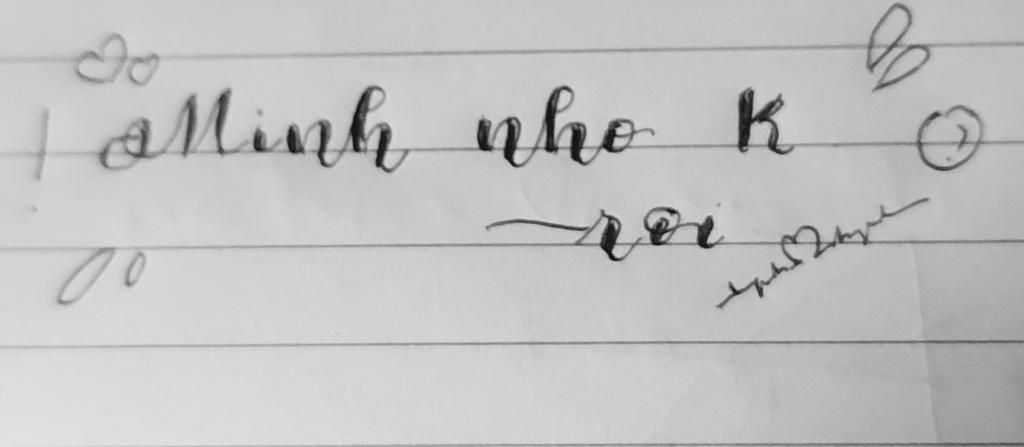 Minh nho K
roi